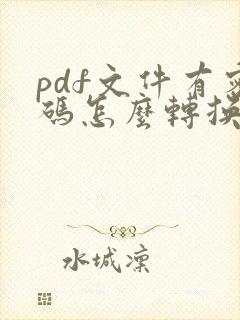 pdf文件有密
碼怎麼轉換
水城凜